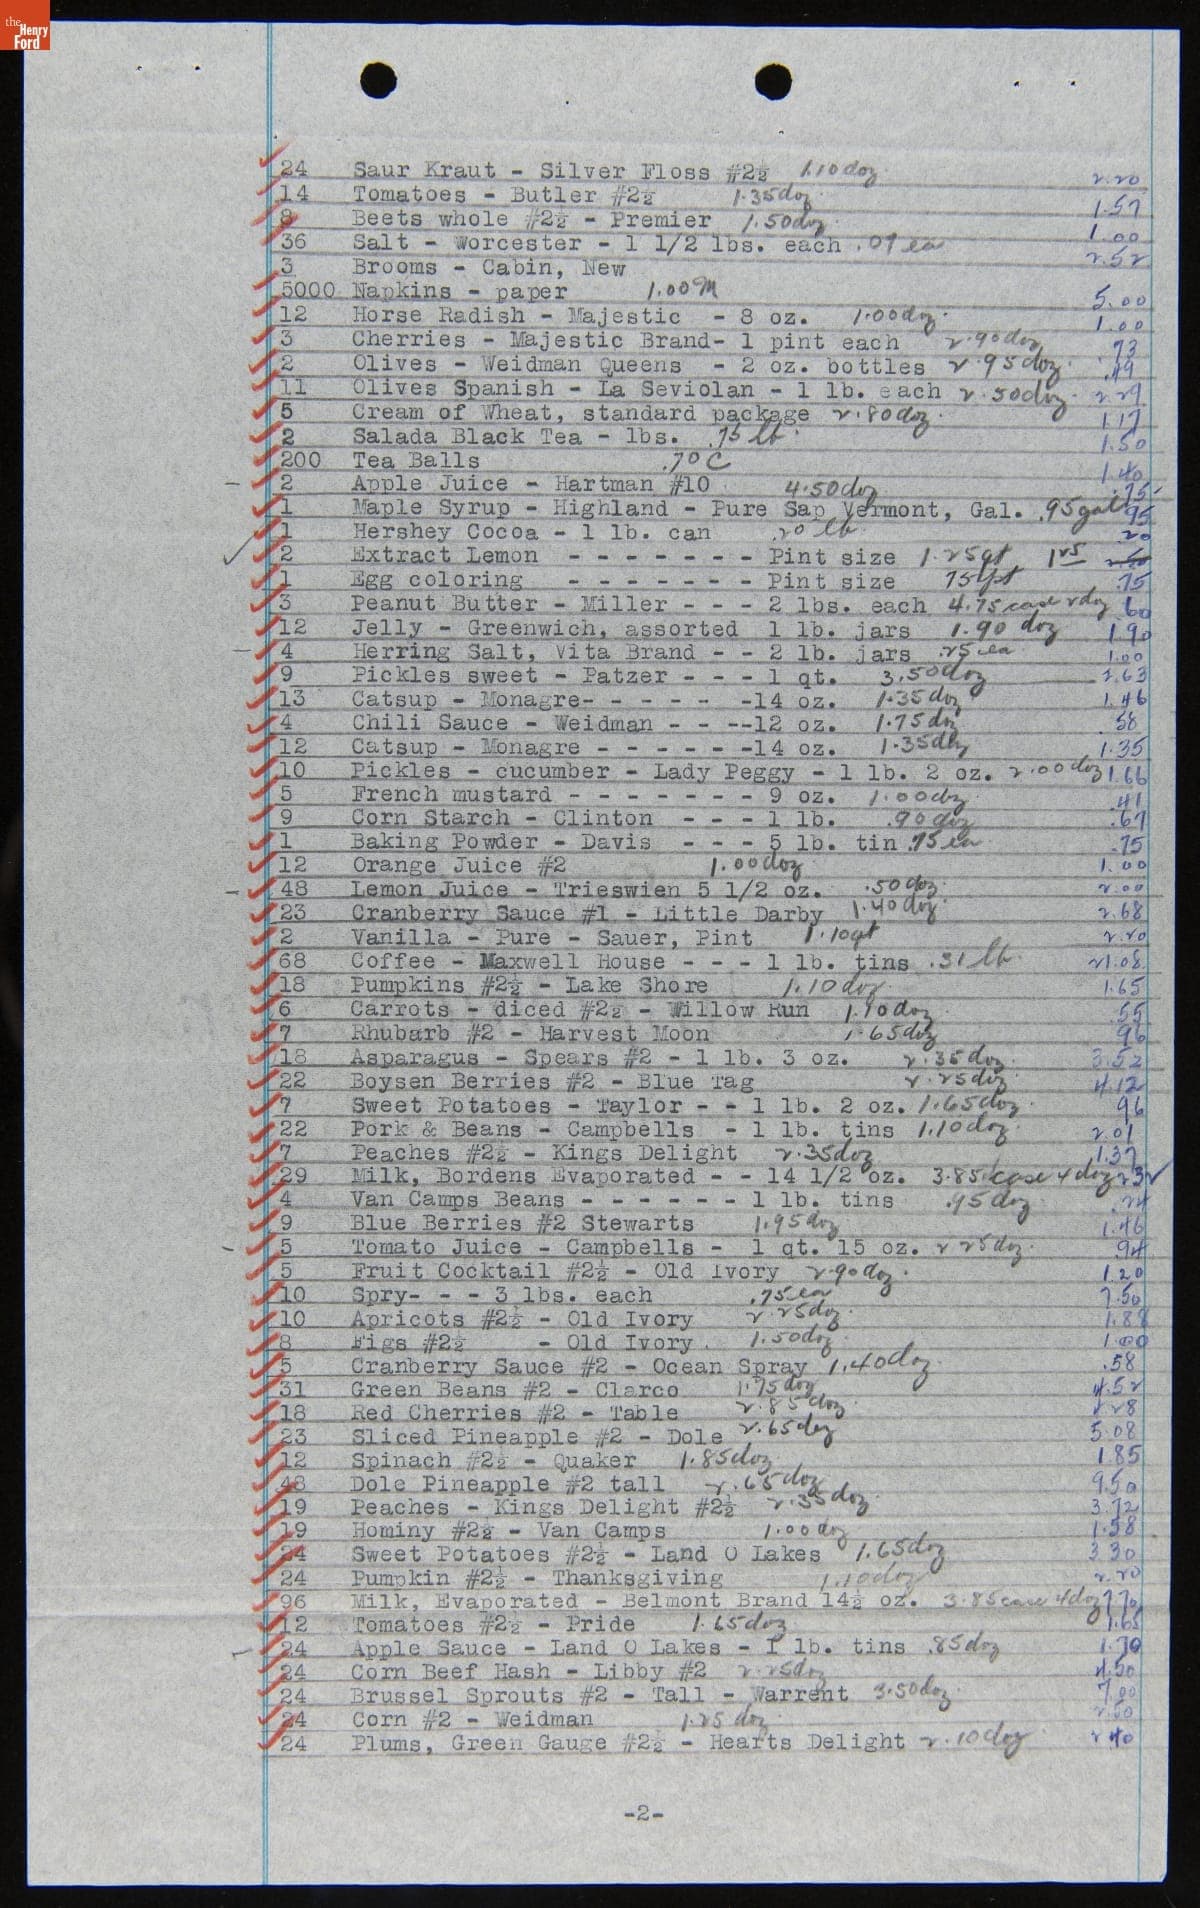 the Henry Ford
24 Saur Kraut - Silver Floss #2½ 1.10 doz 2.20
14 Tomatoes - Butler #2½ 1.35 doz. 1.57
8 Beets whole #2½ - Premier 1.50 doz. 1.00
36 Salt - Worcester - 1 1/2 lbs. each .07 ea 2.52
3 Brooms - Cabin, New
5000 Napkins - paper 1.00 M 5.00
12 Horse Radish - Majestic - 8 oz. 1.00 doz. 1.00
3 Cherries - Majestic Brand- 1 pint each 2.90 doz .73
2 Olives - Weidman Queens - 2 oz. bottles 2.95 doz. .49
11 Olives Spanish - La Seviolan - 1 lb. each 2.50 doz. 2.29
5 Cream of Wheat, standard package 2.80 doz. 1.17
2 Salada Black Tea - lbs. .75 lb. 1.50
200 Tea Balls .70 C 1.40
2 Apple Juice - Hartman #10 4.50 doz .75
1 Maple Syrup - Highland - Pure Sap Vermont, Gal. .95 gal. .95
1 Hershey Cocoa - 1 lb. can .20 lb. .20
2 Extract Lemon - - - - - - - Pint size 1.25 qt 1 25
1 Egg coloring - - - - - - - Pint size 75 pt .75
3 Peanut Butter - Miller - - - 2 lbs. each 4.75 case 2 doz 60
12 Jelly - Greenwich, assorted 1 lb. jars 1.90 doz 1.90
4 Herring Salt, Vita Brand - - 2 lb. jars .25 ea 1.00
9 Pickles sweet - Patzer - - - 1 qt. 3.50 doz 2.63
13 Catsup - Monagre- - - - - -14 oz. 1.35 doz 1.46
4 Chili Sauce - Weidman - - --12 oz. 1.75 doz .58
12 Catsup - Monagre - - - - - -14 oz. 1.35 doz 1.35
10 Pickles - cucumber - Lady Peggy - 1 lb. 2 oz. 2.00 doz 1.66
5 French mustard - - - - - - - 9 oz. 1.00 doz. .41
9 Corn Starch - Clinton - - - 1 lb. .90 doz .67
1 Baking Powder - Davis - - - 5 lb. tin .75 ea .75
12 Orange Juice #2 1.00 doz 1.00
48 Lemon Juice - Trieswien 5 1/2 oz. .50 doz. 2.00
23 Cranberry Sauce #1 - Little Darby 1.40 doz. 2.68
2 Vanilla - Pure - Sauer, Pint 1.10 qt 2.20
68 Coffee - Maxwell House - - - 1 lb. tins .31 lb. 21.08
18 Pumpkins #2½ - Lake Shore 1.10 doz 1.65
6 Carrots - diced #2½ - Willow Run 1.10 doz .55
7 Rhubarb #2 - Harvest Moon 1.65 doz 96
18 Asparagus - Spears #2 - 1 lb. 3 oz. 2.35 doz. 3.52
22 Boysen Berries #2 - Blue Tag 2.25 doz 4.12
7 Sweet Potatoes - Taylor - - 1 lb. 2 oz. 1.65 doz. 96
22 Pork & Beans - Campbells - 1 lb. tins 1.10 doz. 2.01
7 Peaches #2½ - Kings Delight 2.35 doz 1.37
29 Milk, Bordens Evaporated - - 14 1/2 oz. 3.85 case 4 doz 2 32
4 Van Camps Beans - - - - - - 1 lb. tins .95 doz
9 Blue Berries #2 Stewarts 1.95 doz 1.46
5 Tomato Juice - Campbells - 1 qt. 15 oz. 2 25 doz. .94
5 Fruit Cocktail #2½ - Old Ivory 2.90 doz. 1.20
10 Spry- - - 3 lbs. each .75 ea 7.50
10 Apricots #2½ - Old Ivory 2.25 doz. 1.88
8 Figs #2½ - Old Ivory 1.50 doz. 1.00
5 Cranberry Sauce #2 - Ocean Spray 1.40 doz. .58
31 Green Beans #2 - Clarco 1.75 doz 4.52
18 Red Cherries #2 - Table 2.85 doz. 4.28
23 Sliced Pineapple #2 - Dole 2.65 doz 5.08
12 Spinach #2½ - Quaker 1.85 doz 1.85
43 Dole Pineapple #2 tall 2.65 doz 9.50
19 Peaches - Kings Delight #2½ 2.35 doz. 3.72
19 Hominy #2½ - Van Camps 1.00 doz 1.58
24 Sweet Potatoes #2½ - Land O Lakes 1.65 doz 3 30
24 Pumpkin #2½ - Thanksgiving 1.10 doz 2.20
96 Milk, Evaporated - Belmont Brand 14½ oz. 3.85 case 4 doz 7.70
12 Tomatoes #2½ - Pride 1.65 doz 1.65
24 Apple Sauce - Land O Lakes - 1 lb. tins .85 doz 1.70
24 Corn Beef Hash - Libby #2 2.25 doz 4.50
24 Brussel Sprouts #2 - Tall - Warrent 3.50 doz. 7.00
24 Corn #2 - Weidman 1.25 doz. 2.50
24 Plums, Green Gauge #2½ - Hearts Delight 2.10 doz 2 40
-2-